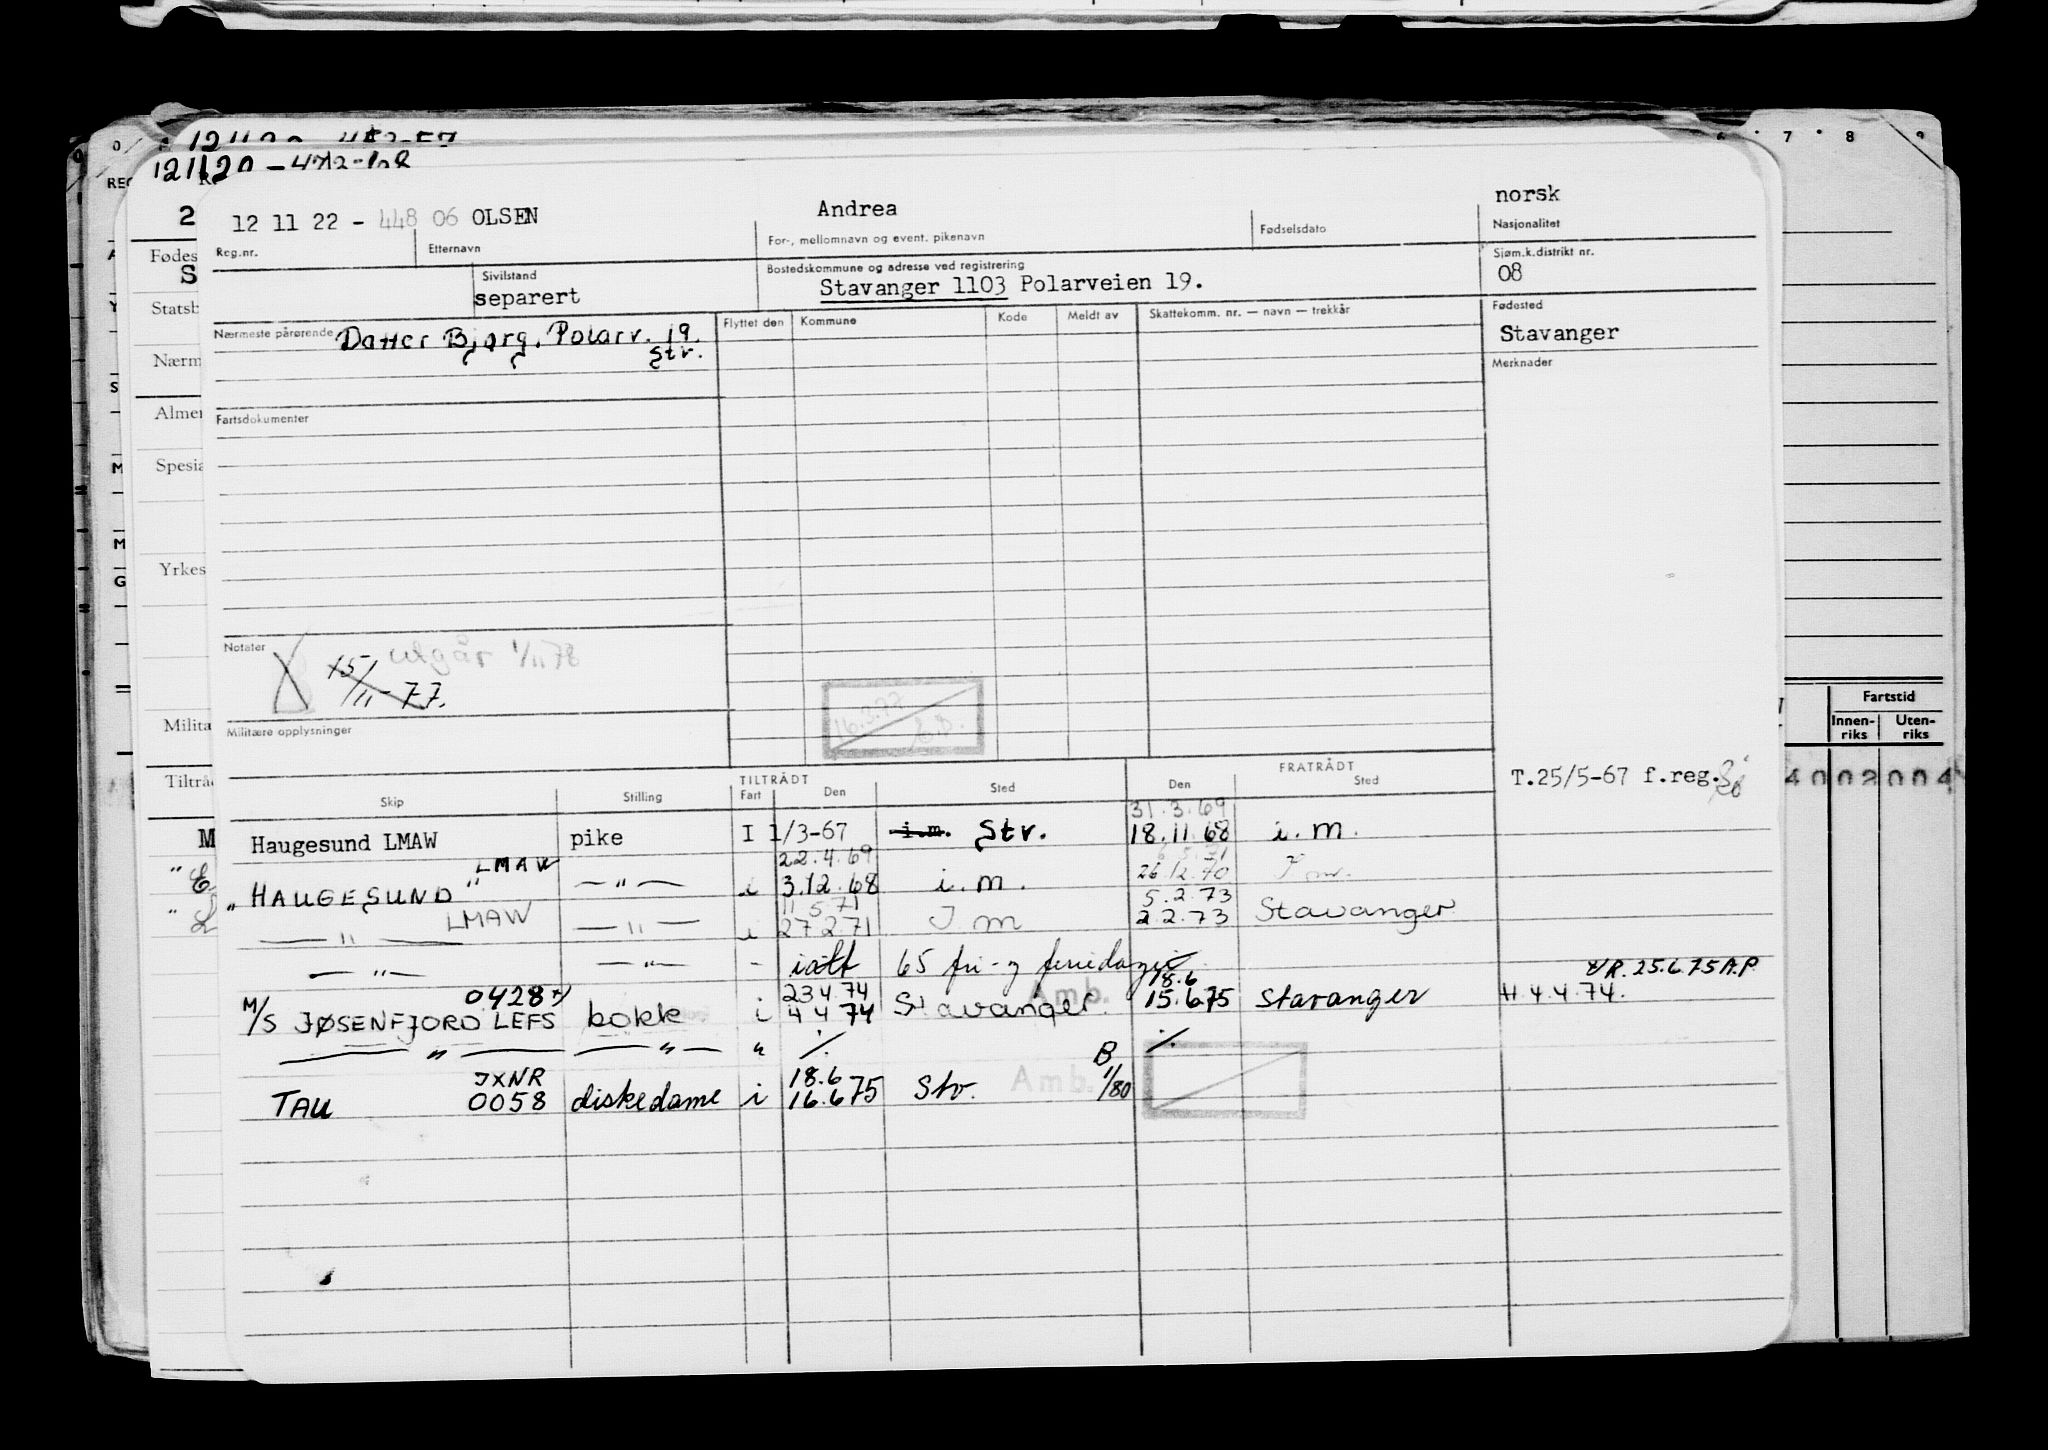 121120 -
12 11 22 - 448 06 OLSEN Andrea norsk
Reg.nr. Etternavn For-, mellomnavn og event. pikenavn Fødselsdato Nasjonalitet
Sivilstand Bostedskommune og adresse ved registrering Sjøm.k.distrikt nr.
separert Stavanger 1103 Polarveien 19. 08
Nærmeste pårørende Datter Bjørg, Polarv. 19. Flyttet den Kommune Kode Meldt av Skattekomm. nr. — navn — trekkår Fødested
Str. Stavanger
Merknader
Fartsdokumenter
Notater utgår 1/11 78
15/11-77.
16.3.77
Militære opplysninger
TILTRÅDT FRATRÅDT
Skip Stilling Fart Den Sted Den Sted
T.25/5-67 f.reg.
31.3.69
Haugesund LMAW pike I 1/3-67 i.m. Str. 18.11.68 i.m.
LMAW 22.4.69
" HAUGESUND " — " — i 3.12.68 i.m. 26.12.70
11 5.71 5.2.73
— " — LMAW — " — i 27 2 71 I m 2.2.73 Stavanger
— " — — " — - iatt 65 fri- og feriedager
0428 23 4 74 Amb. 18.6 R. 25.6.75 A.P
M/S JØSENFJORD LEFS kokk i 4 4 74 Stavanger. 15.675 Stavanger H 4.4.74.
— " — — " — " ./. ./.
JXNR 18.6 Amb. B
TAU 0058 diskedame i 16.675 Stv. 1/80
REG
Fødes
S
Statsb
Nærm
Almer
Spesia
Yrkes
Milita
Tiltråd
M
7 8 9
Fartstid
Innen-riks Uten-riks
40 02 004